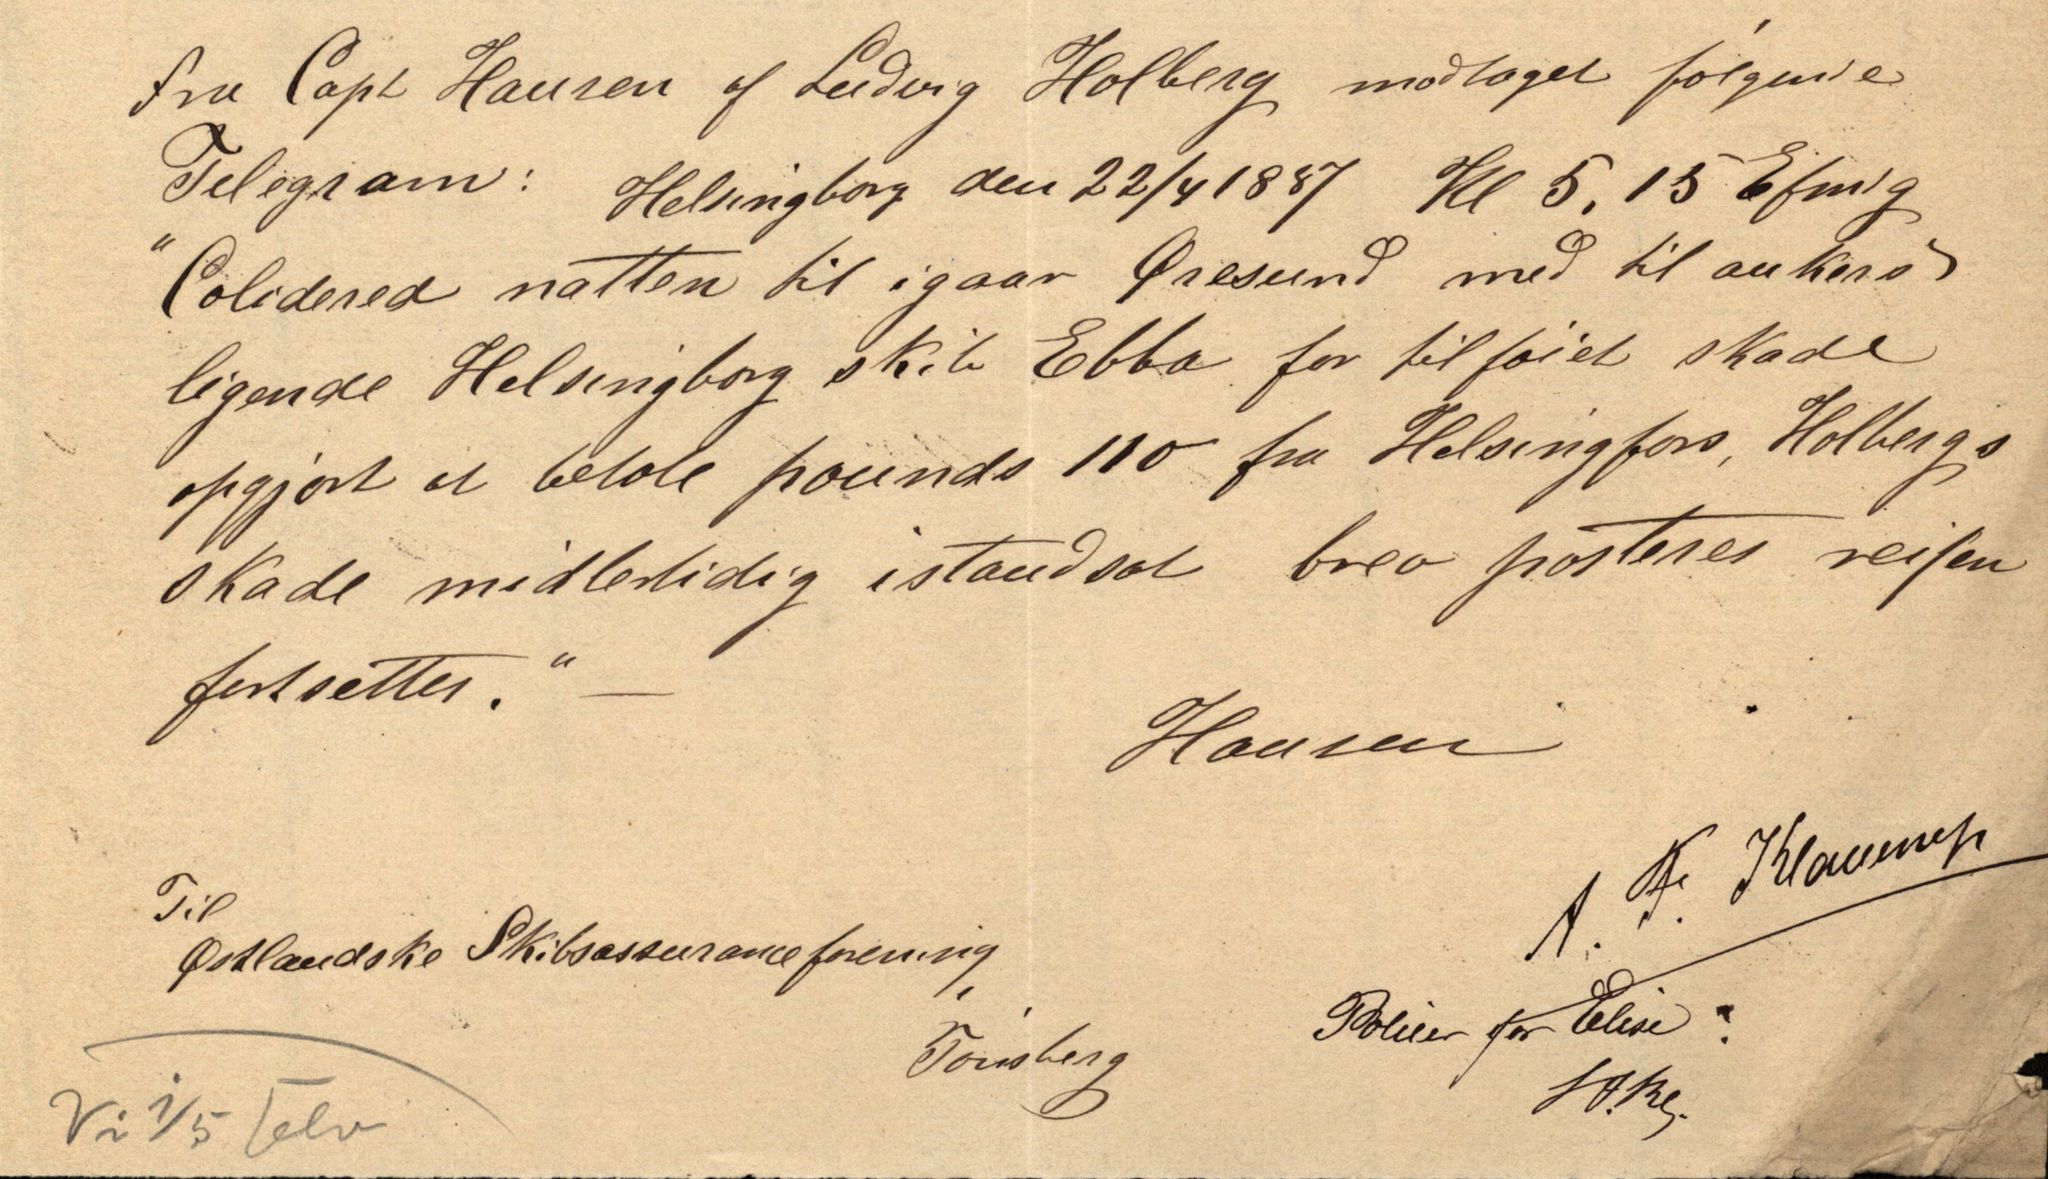 fra Capt Hansen af Ludvig Holberg modtaget følgende
Telegram: Helsingborg den 22/4 1887 Kl 5,15 Efmig
"Colidered natten til igaar Øresund med til ankers
ligende Helsingborg skib Ebba for tilføiet skade
opgjort at betale pounds 110 fra Helsingfors, Holbergs
skade midlertidig istandsat brev posteres reisen
fortsettes." —
Hansen
A. F. Klaveness
Til
Østlandske Skibsassuranceforening
Tønsberg
Policer for Elise
Vi 1/5